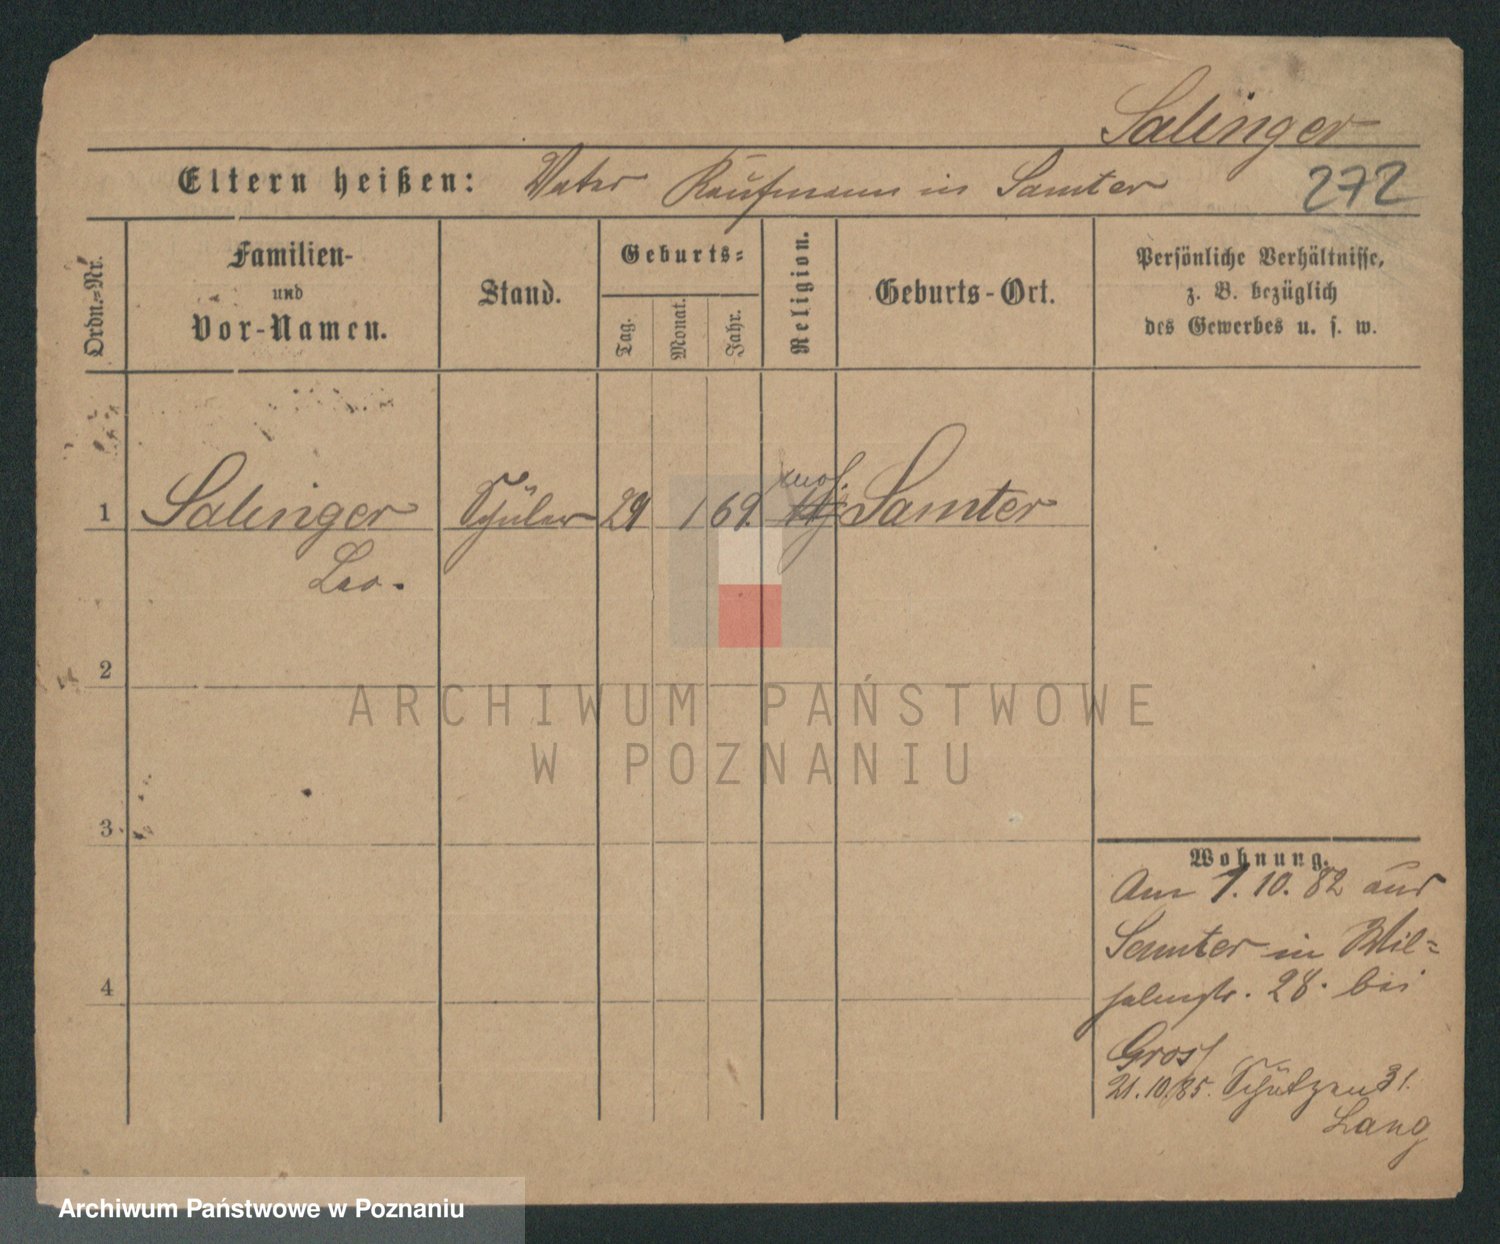 Salinger
Eltern heißen: Vater Kaufmann in Samter
272
Ordn.=Nr.
Familien-
und
Vor-Namen.
Stand.
Geburts=
Tag.
Monat.
Jahr.
Religion.
Geburts-Ort.
Persönliche Verhältnisse,
z. B. bezüglich
des Gewerbes u. s. w.
mos
1 Salinger Schüler 29 1 69. Samter
Leo.
2
3
4
Wohnung.
Am 1.10.82 aus
Samter in Wil=
helmstr. 28. bei
Gross
21.10.85. Schützen 31.
Lang
ARCHIWUM PAŃSTWOWE
W POZNANIU
Archiwum Państwowe w Poznaniu